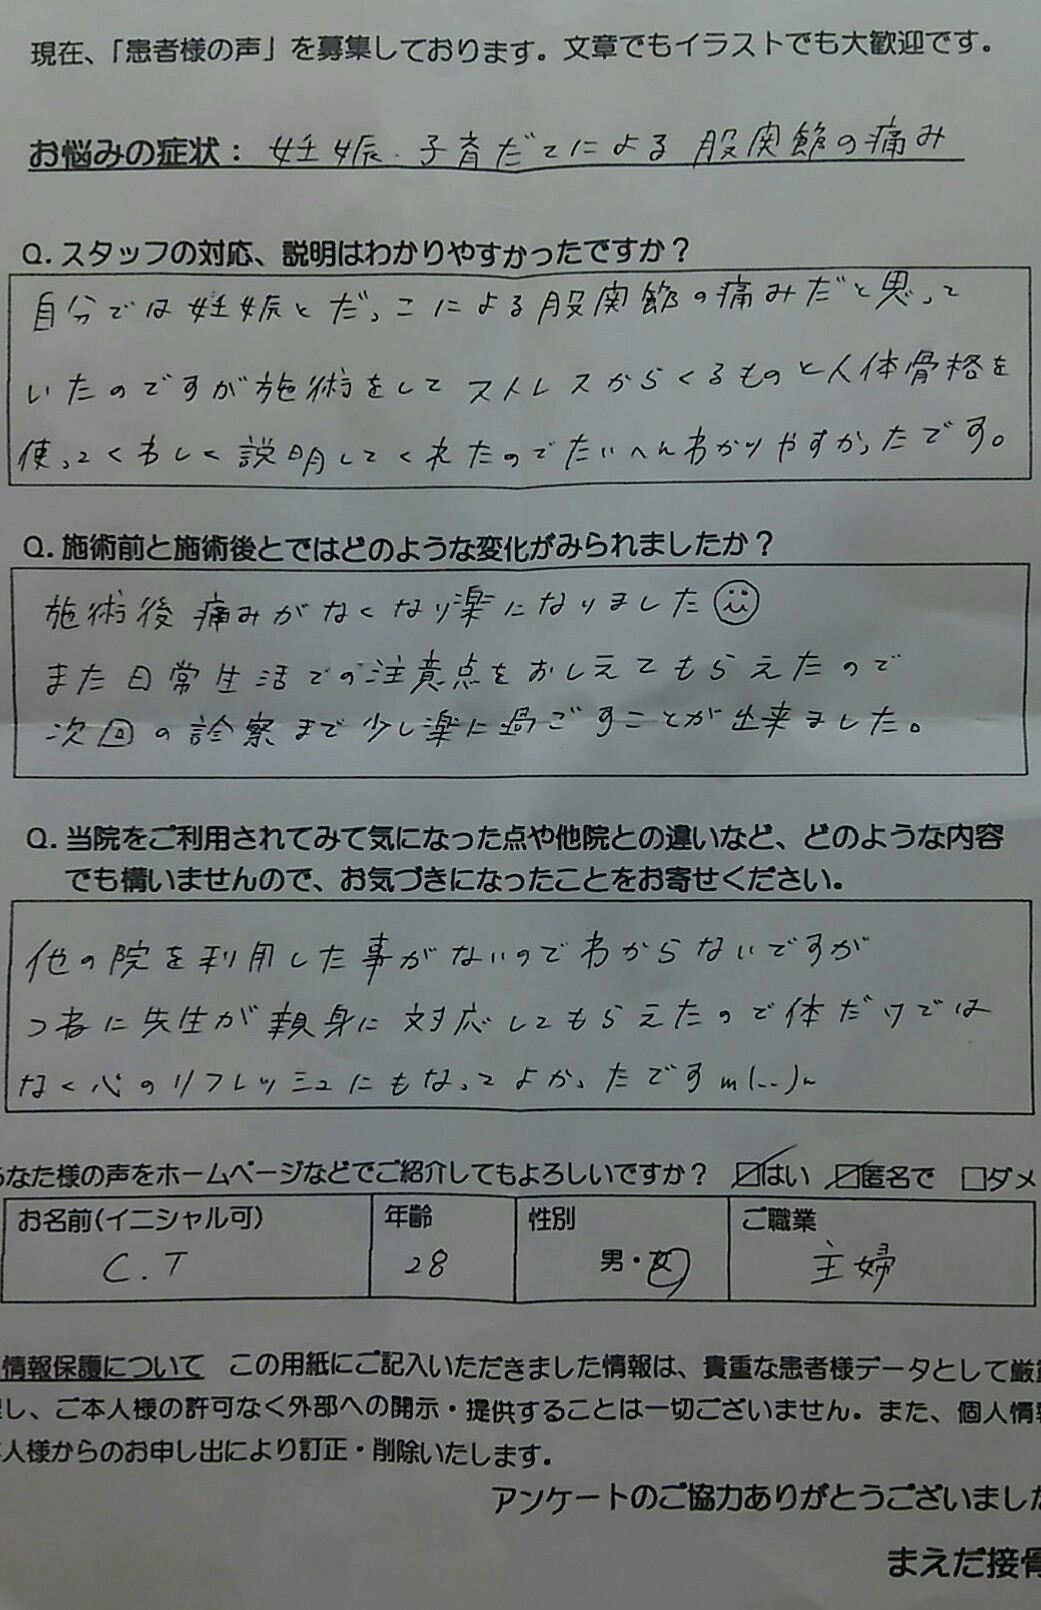 現在、「患者様の声」を募集しております。文章でもイラストでも大歓迎です。
お悩みの症状： 妊娠・子育だてによる股関節の痛み
Q. スタッフの対応、説明はわかりやすかったですか？
自分では妊娠とだっこによる股関節の痛みだと思って
いたのですが施術をしてストレスからくるものと人体骨格を
使ってくわしく説明してくれたのでたいへんわかりやすかったです。
Q. 施術前と施術後とではどのような変化がみられましたか？
施術後痛みがなくなり楽になりました
また日常生活での注意点をおしえてもらえたので
次回の診察まで少し楽に過ごすことが出来ました。
Q. 当院をご利用されてみて気になった点や他院との違いなど、どのような内容
でも構いませんので、お気づきになったことをお寄せください。
他の院を利用した事がないのでわからないですが
つねに先生が親身に対応してもらえたので体だけでは
なく心のリフレッシュにもなってよかったです m(..)m
あなた様の声をホームページなどでご紹介してもよろしいですか？ ☑はい ☑匿名で □ダメ
お名前(イニシャル可) 年齢 性別 ご職業
C.T 28 男・女 主婦
情報保護について この用紙にご記入いただきました情報は、貴重な患者様データとして厳
し、ご本人様の許可なく外部への開示・提供することは一切ございません。また、個人情報
人様からのお申し出により訂正・削除いたします。
アンケートのご協力ありがとうございました
まえだ接骨